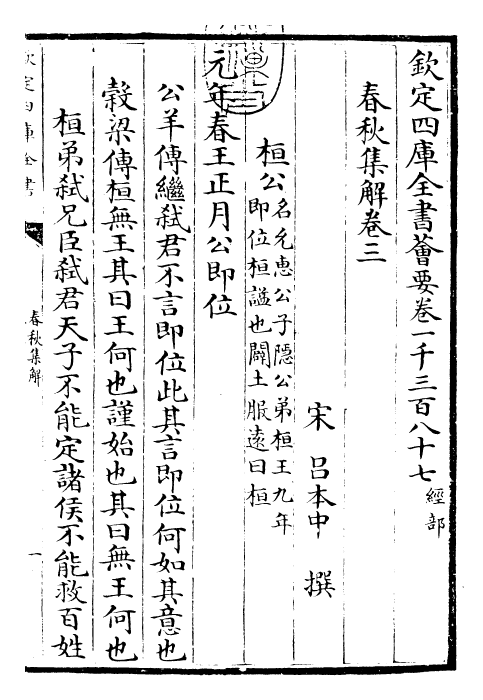 欽定四庫全書薈要卷一千三百八十七 經部
春秋集解卷三
宋 呂本中 撰
桓公 名允惠公子隱公弟桓王九年
即位桓諡也闢土服遠曰桓
元年春王正月公即位
公羊傳繼弑君不言即位此其言即位何如其意也
穀梁傳桓無王其曰王何也謹始也其曰無王何也
桓弟弑兄臣弑君天子不能定諸侯不能救百姓
欽定四庫全書
春秋集解
一